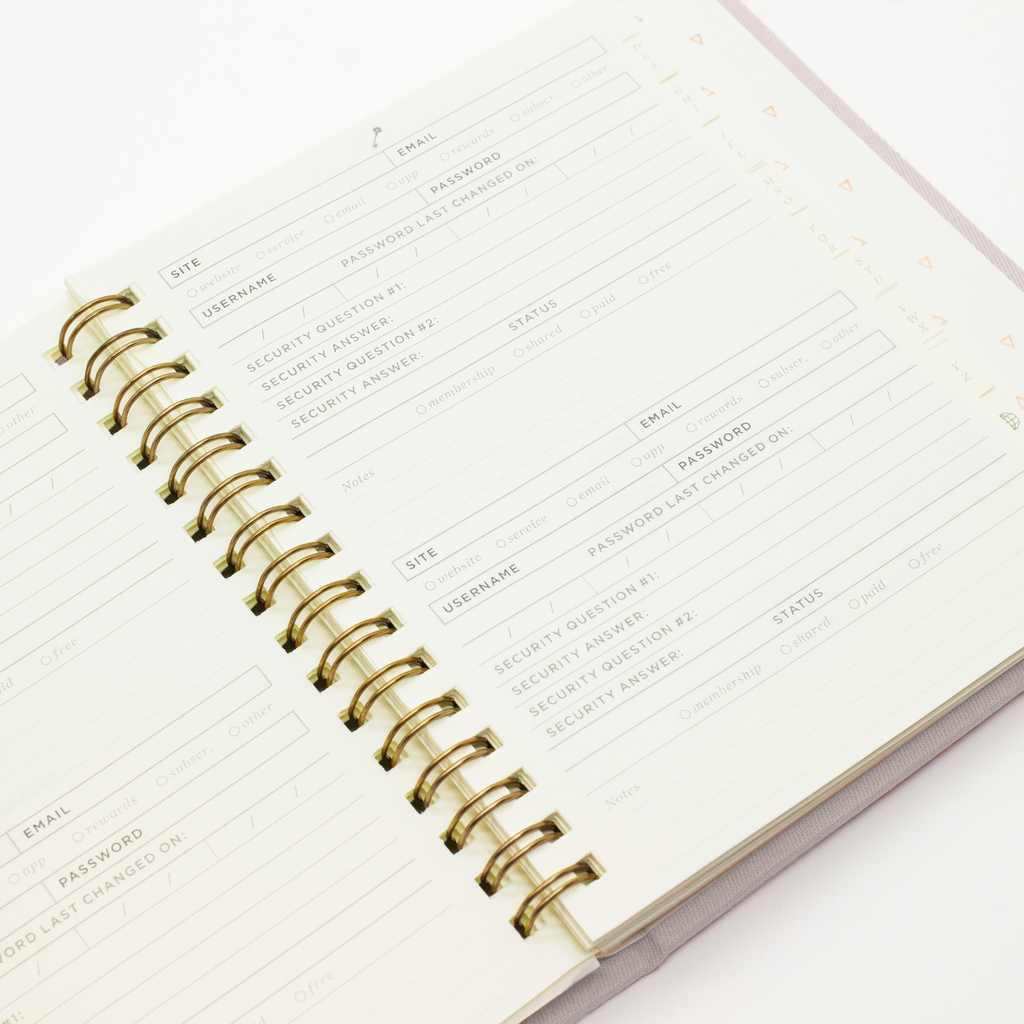 SITE EMAIL
website service email app rewards subscr. other
USERNAME PASSWORD
PASSWORD LAST CHANGED ON:
/ / / / / / / /
SECURITY QUESTION #1:
SECURITY ANSWER:
SECURITY QUESTION #2:
SECURITY ANSWER:
STATUS
membership shared paid free
Notes
SITE EMAIL
website service email app rewards subscr. other
USERNAME PASSWORD
PASSWORD LAST CHANGED ON:
/ / / / / / / /
SECURITY QUESTION #1:
SECURITY ANSWER:
SECURITY QUESTION #2:
SECURITY ANSWER:
STATUS
membership shared paid free
Notes
D E F
G H I
J K L
M N O
P Q R
S T U
V W X
Y Z
other
/ /
free
EMAIL
app rewards subscr. other
PASSWORD
LAST CHANGED ON:
/ / / /
#1:
free